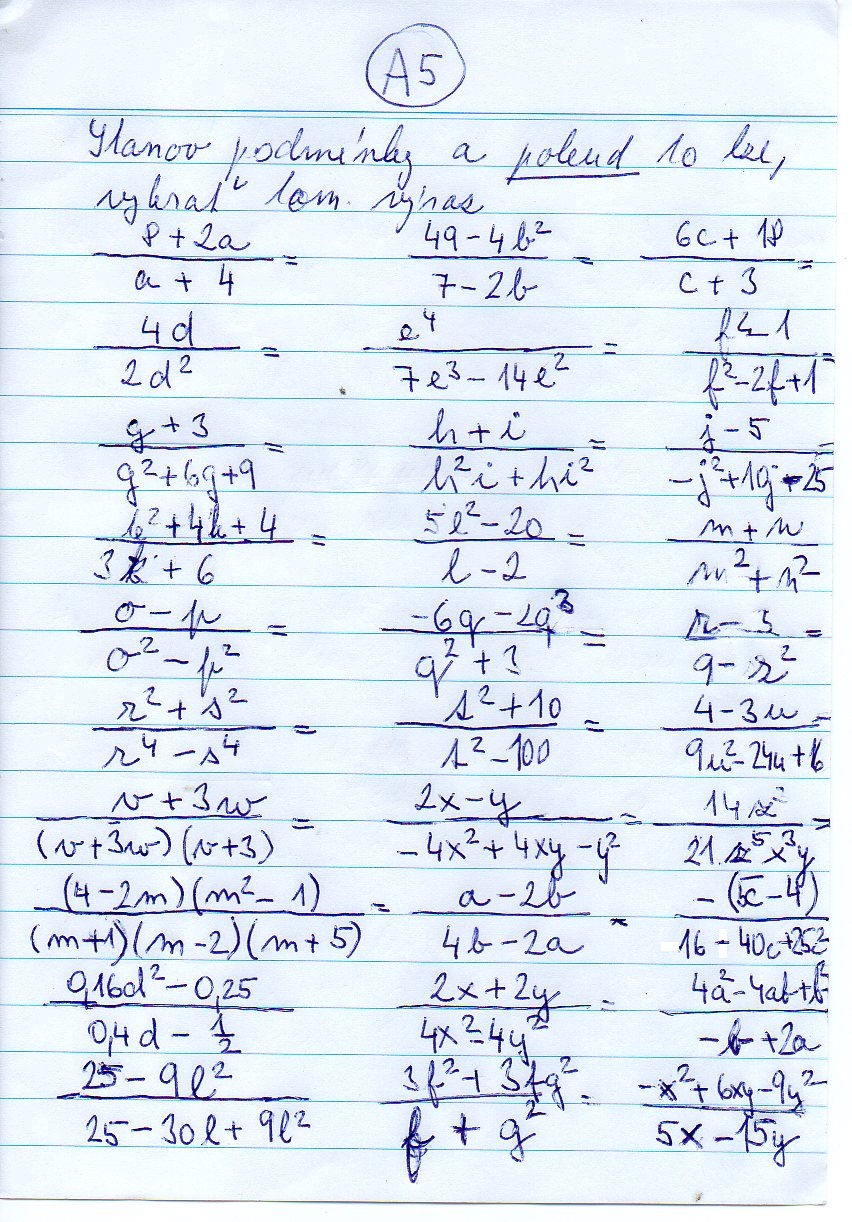 A5
Stanov podmínky a pokud to lze,
vykrať lom. výraz
8 + 2a / a + 4 = 49 - 4b² / 7 - 2b = 6c + 18 / c + 3 =
4d / 2d² = e⁴ / 7e³ - 14e² = f² - 1 / f² - 2f + 1 =
g + 3 / g² + 6g + 9 = h + i / h²i + hi² = j - 5 / -j² + 10j - 25 =
k² + 4k + 4 / 3k + 6 = 5l² - 20 / l - 2 = m + n / m² + n²
o - p / o² - p² = -6q - 2q³ / q² + 3 = r - 3 / 9 - r² =
r² + s² / r⁴ - s⁴ = t² + 10 / t² - 100 = 4 - 3u / 9u² - 24u + 16 =
v + 3w / (v + 3w)(v + 3) = 2x - y / -4x² + 4xy - y² = 14z² / 21z⁵x³y =
(4 - 2m)(m² - 1) / (m + 1)(m - 2)(m + 5) = a - 2b / 4b - 2a = -(5c - 4) / 16 - 40c + 25c²
0,16d² - 0,25 / 0,4d - 1/2 2x + 2y / 4x² - 4y² = 4a² - 4ab + b² / -b + 2a
25 - 9l² / 25 - 30l + 9l² 3f² + 3fg² / f + g² = -x² + 6xy - 9y² / 5x - 15y